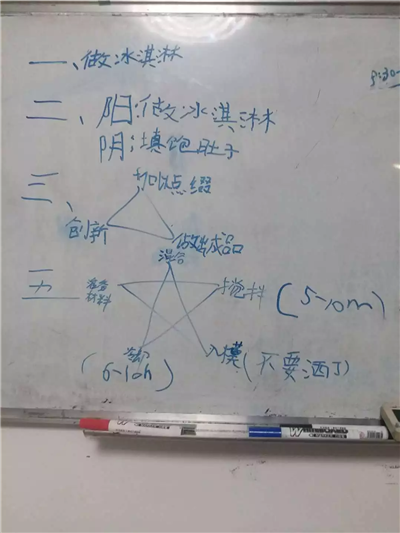 一、做冰淇淋
二、阳:做冰淇淋
阴:填饱肚子
三、
加以点缀
创新
做成成品
混合
五
准备
材料
搅拌
(5-10m)
冷却
(6-10h)
入模(不要洒了)